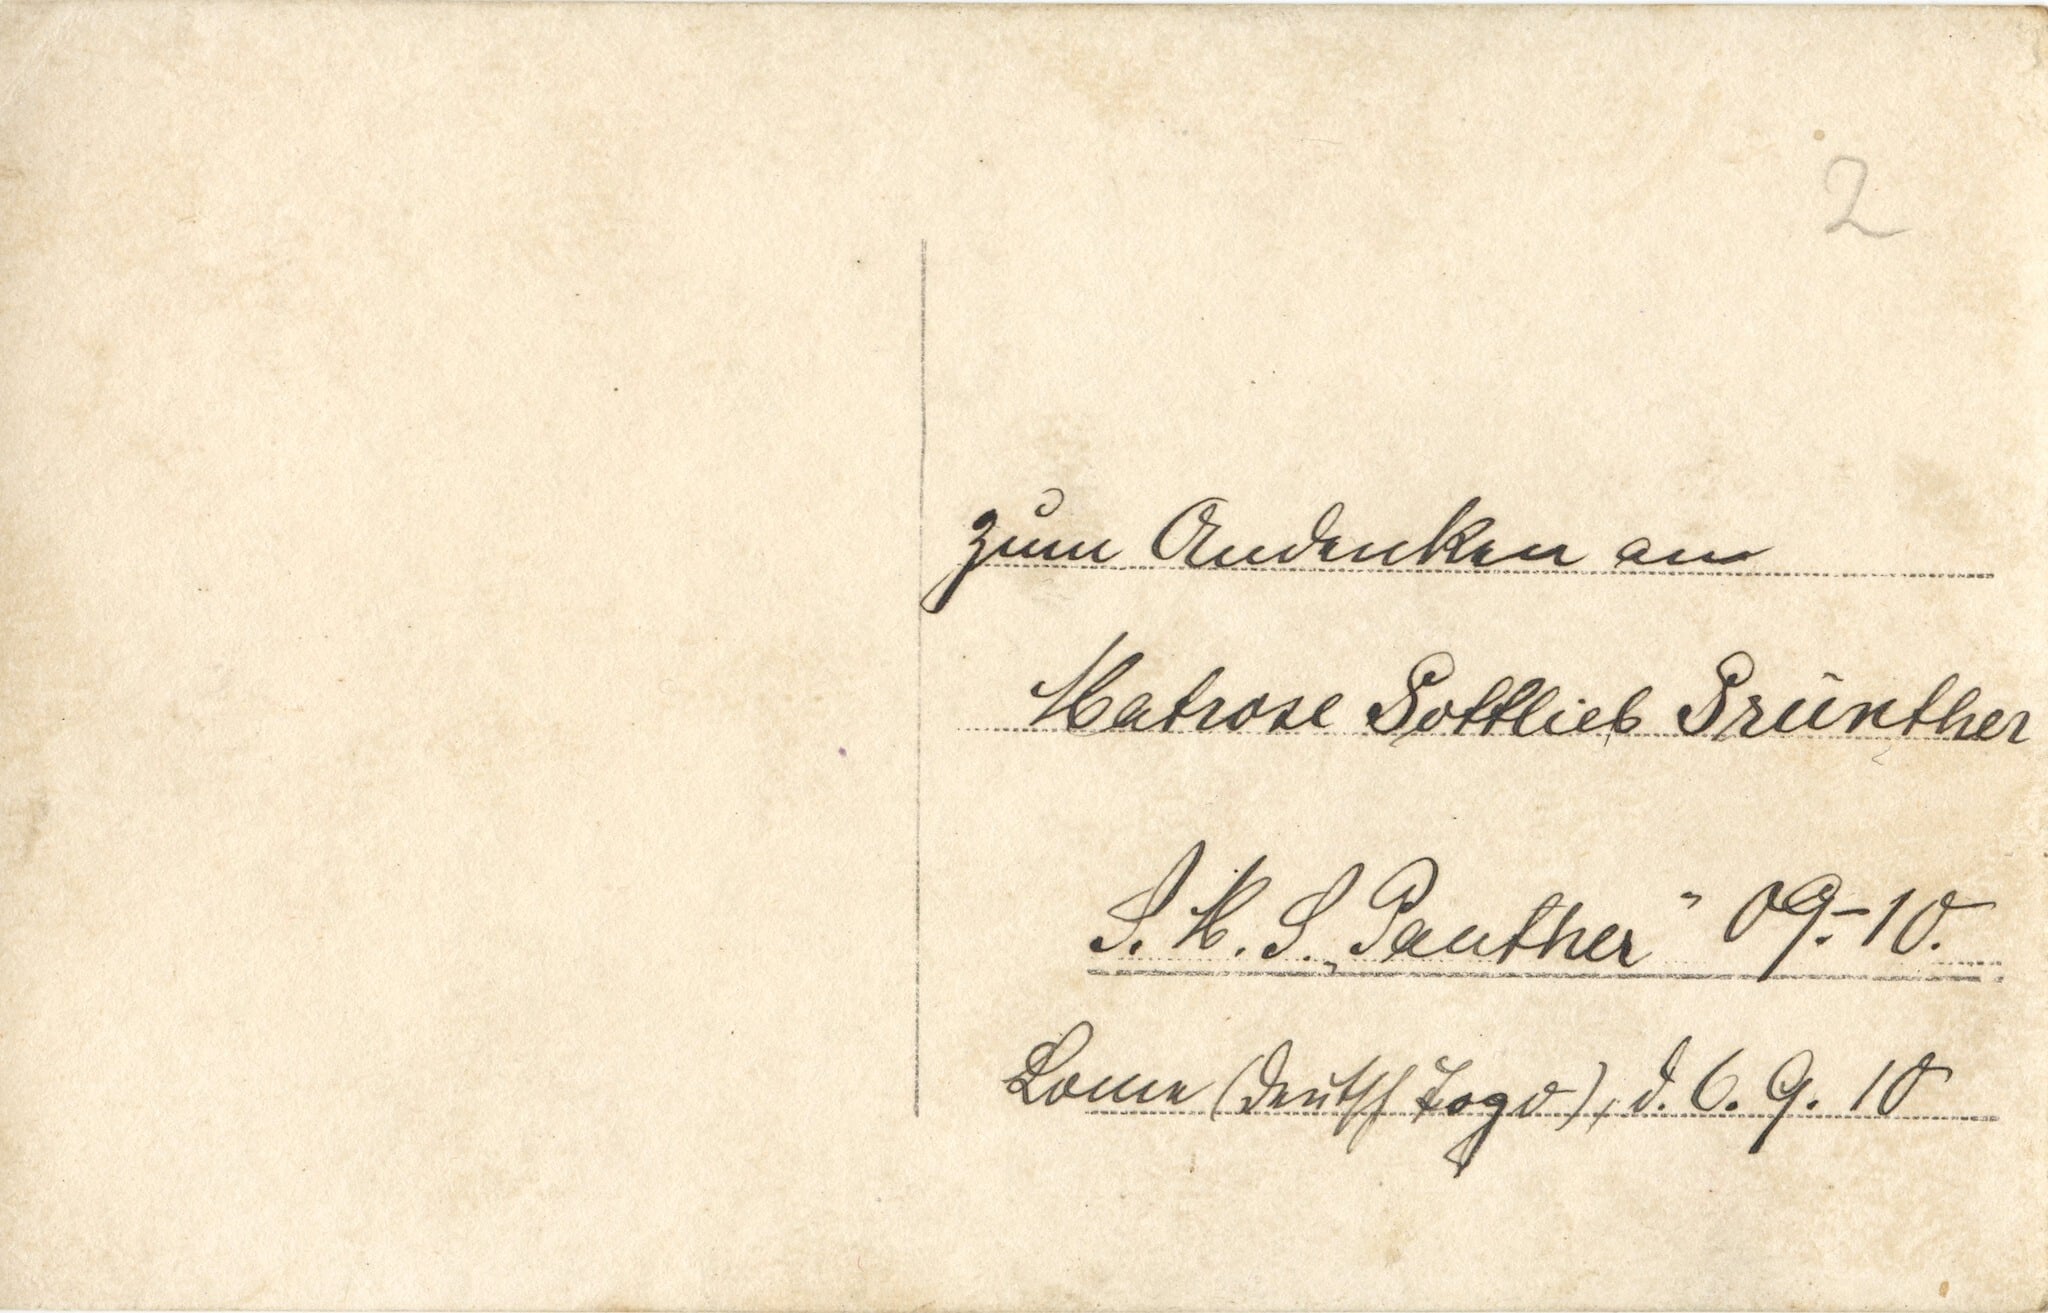 2
zum Andenken an
Matrose Gottlieb Grünther
S. M. S. „Panther" 09.-10.
Lome (Deutsch Togo), d. 6. 9. 10